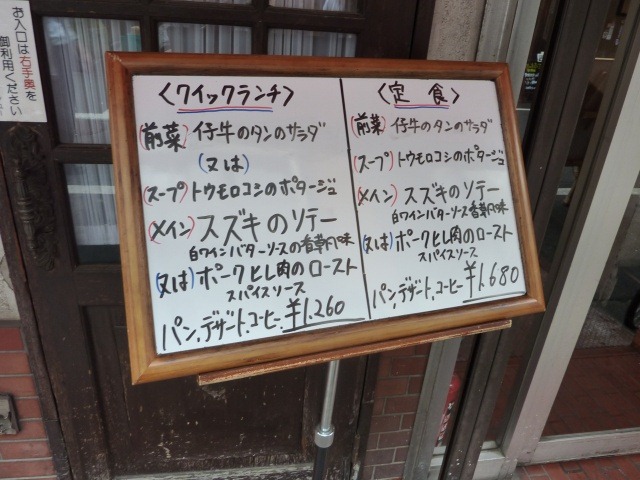 お入口は右手奥を
御利用ください
〈クイックランチ〉
(前菜) 仔牛のタンのサラダ
(又は)
(スープ)トウモロコシのポタージュ
(メイン)スズキのソテー
白ワインバターソースの香草風味
(又は)ポークヒレ肉のロースト
スパイスソース
パン、デザート、コーヒー、¥1,260
〈定食〉
(前菜) 仔牛のタンのサラダ
(スープ)トウモロコシのポタージュ
(メイン) スズキのソテー
白ワインバターソース香草風味
(又は)ポークヒレ肉のロースト
スパイスソース
パン、デザート、コーヒー ¥1,680